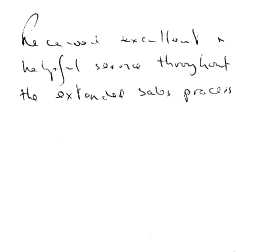 Received excellent &
helpful service throughout
the extended sales process